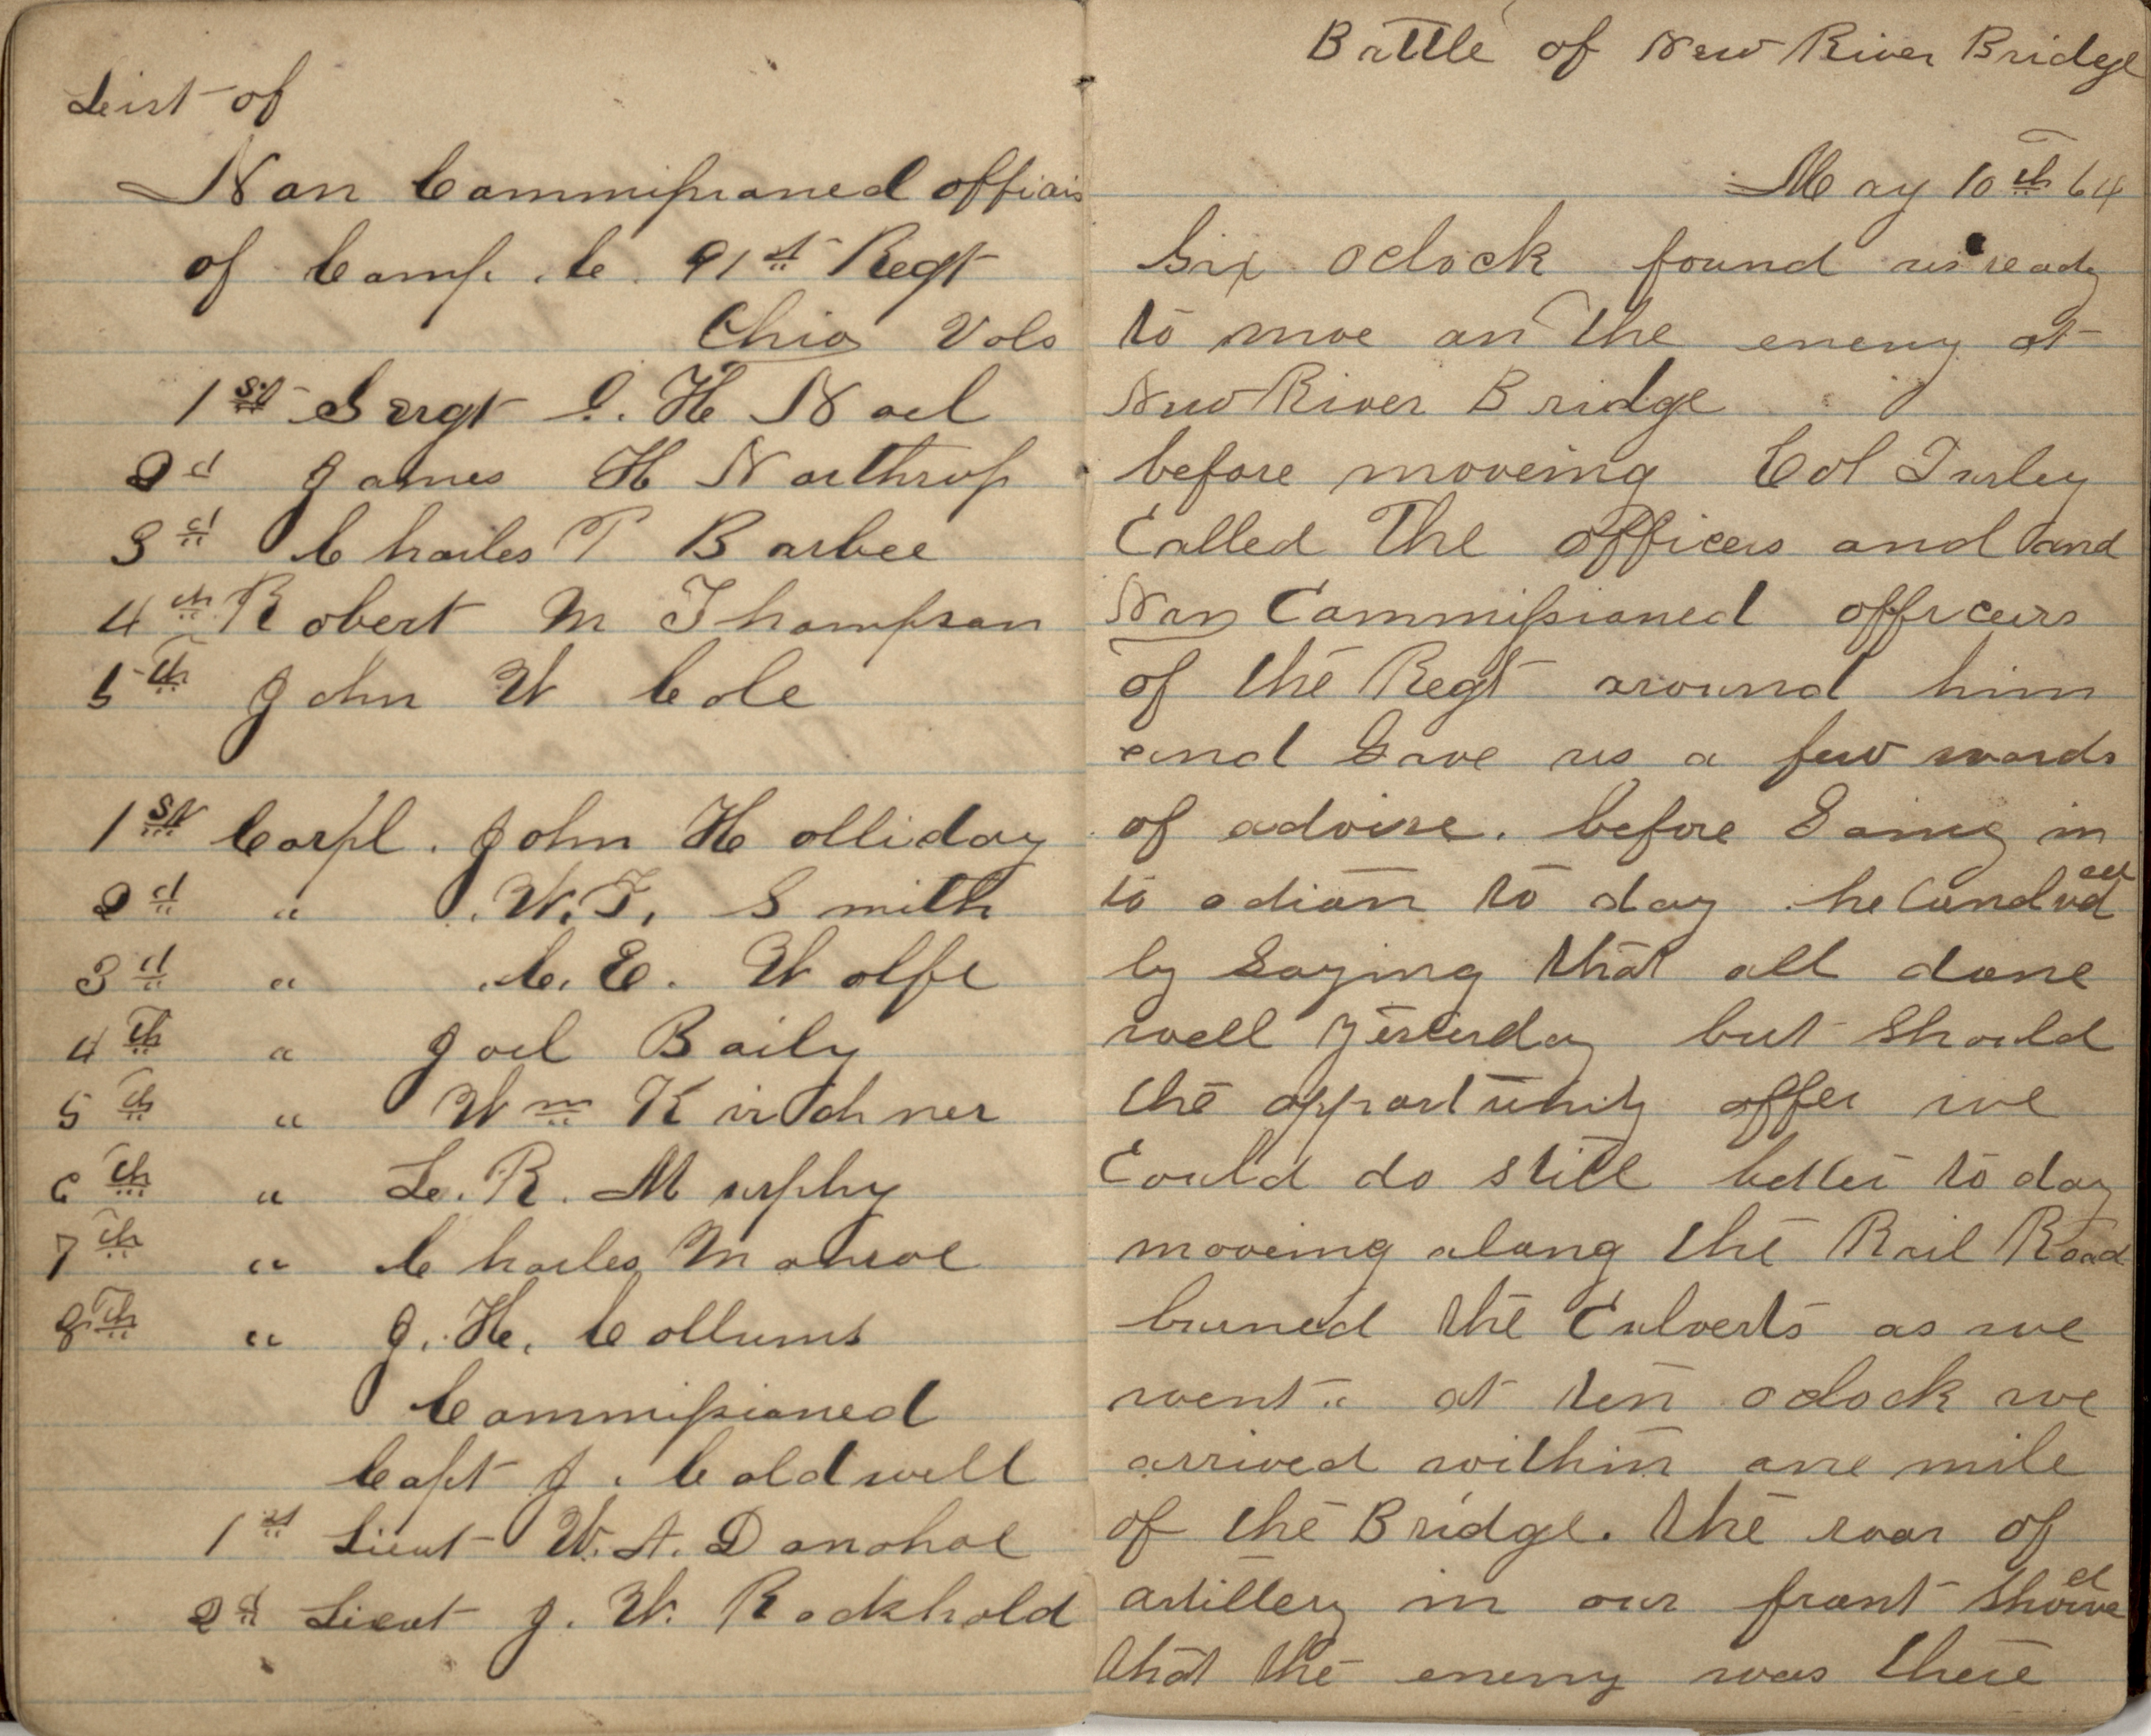 List of
Non Commissioned officirs
of Comp. C. 91st Regt
Ohio Vols
1st Sergt I. H Noel
2d James H Northrop
3d Charles T Barbee
4th Robert M Thompson
5th John W Cole
1st Corpl. John Holliday
2d " W. F. Smith
3d " C. E. Wolfe
4th " Joel Baily
5th " Wm Kirchner
6th " L. R. Murphy
7th " Charles Monroe
8th " J. H. Collums
Commissioned
Capt J. Coldwell
1st Lieut W. A. Donohoe
2d Lieut J. W. Rockhold
Battle of New River Bridge
May 10th 64
Six oclock found us ready
to move on the enemy at
New River Bridge
before moveing Col Turley
Called The officers and and
Non Commissioned officeirs
of the Regt around him
and Gave us a few words
of advise. before Going in
to action to day he Concluded
by Saying that all done
well yesterday but Should
the opportunity offer we
Could do still better to day
moveing along the Rail Road
burned the Culverts as we
went.. at ten oclock we
arrived within one mile
of the Bridge. the roar of
artillery in our front showed
that the enemy was there